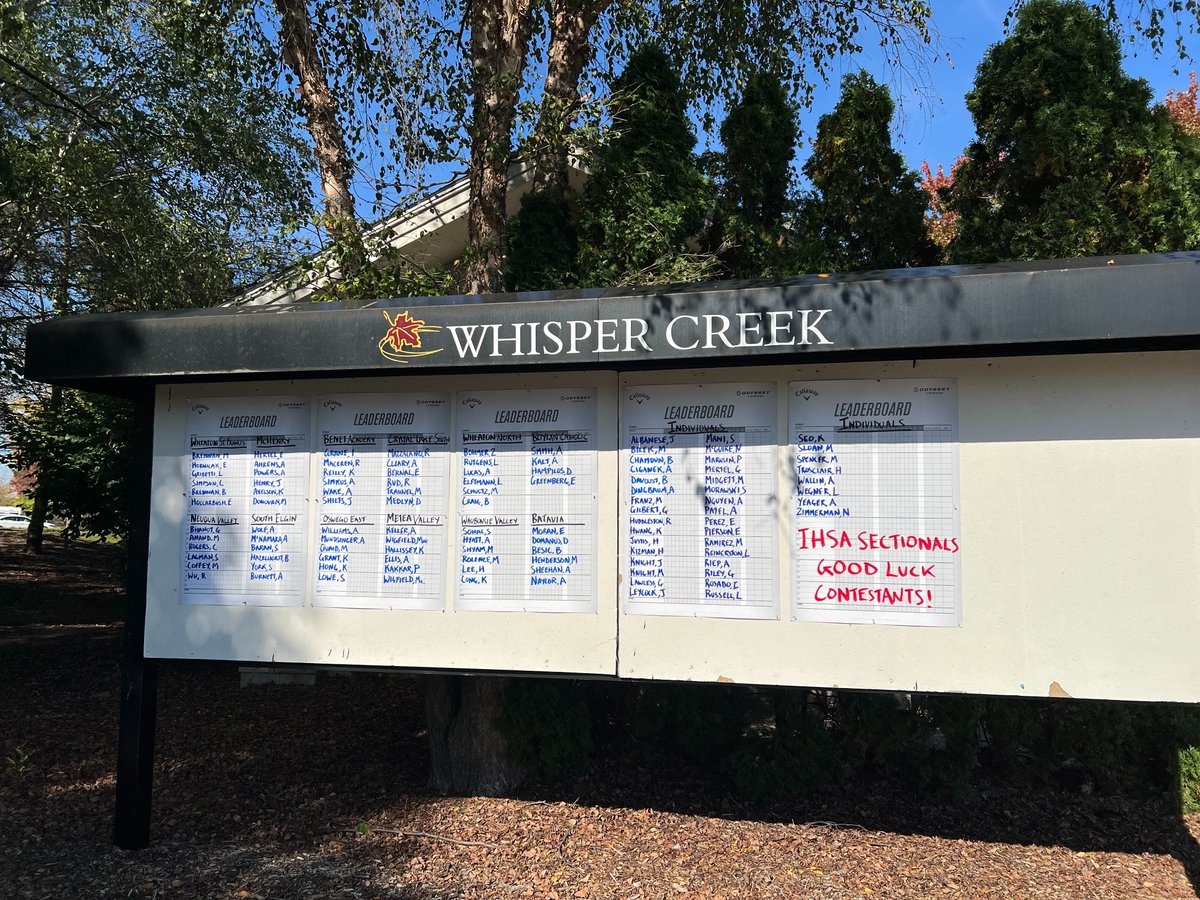 WHISPER CREEK
Callaway
ODYSSEY
LEADERBOARD
WHEATON ST. FRANCIS
BRENNAN, M
HORNUAK, E
GRISETTI, L
SIMPSON, C
BRENNAN, B
HOLLARBUSH, E
MCHENRY
HERTEL, E
AHRENS, A
POWERS, A
HENRY, J
AXELSON, K
DONOVAN, M
NEUQUA VALLEY
BHANOT, G
ANAND, M
ROGERS, C
LAGMAN, S
COFFEY, M
WU, R
SOUTH ELGIN
WOLF, A
MCNAMARA, A
BARAN, S
HAZELUCART, B
YORK, S
BURNETT, A
Callaway
ODYSSEY
LEADERBOARD
BENET ACADEMY
GRANE, I
MACEREN, R
REILLY, K
SIMKUS, A
WAKE, A
SHILTS, J
CRYSTAL LAKE SOUTH
MAZZALANO, R
CLEARY, A
BERNAL, E
RUD, R
TRAUNEL, M
MEDLYN, D
OSWEGO EAST
WILLIAMS, A
MUNDSINGER, A
GUND, M
GRANT, K
HONG, K
LOWE, S
METEA VALLEY
KELLER, A
WIGFIELD, MW
HALLISSEY, K
ELLIS, A
KAKKAR, P
WIGFIELD, MC
Callaway
ODYSSEY
LEADERBOARD
WHEATON NORTH
BOHMER, Z
RUTGENS, L
LUCAS, A
ELFTMANN, L
SCHULTZ, M
CRAIG, B
BOYLAN CATHOLIC
SMITH, A
KALT, A
HAMPILOS, D
GREENBERG, E
WAUBONSIE VALLEY
SOHAL, S
HYATT, A
SHYAM, M
ROLENCE, M
LEE, H
CONG, K
BATAVIA
MORAN, E
DOMANUS, D
BESIC, B
HENDERSON, M
SHEEHAN, A
NAYLOR, A
Callaway
ODYSSEY
LEADERBOARD
INDIVIDUALS
ALBANESE, J
BILEK, M
CHAMOUN, B
CIGANEK, A
DAVOUST, B
DINGBAUM, A
FRANZ, M
GILBERT, G
HUDDLESTON, R
HWANG, K
JUSTIS, H
KIZMAN, H
KNIGHT, J
KNIGHT, M
LAWLESS, G
LEYCOCK, J
MANI, S
MCGUIRE, N
MAROSIN, P
MERTEL, G
MIDGETT, M
MORAWSKI, S
NGUYEN, A
PATEL, A
PEREZ, E
PIERSON, E
RAMIREZ, M
REINCRSTON, L
RIEP, A
RILEY, G
ROSADO, I
RUSSELL, L
Callaway
ODYSSEY
LEADERBOARD
INDIVIDUALS
SEO, K
SLOAN, M
SPENCER, M
TROSCLAIR, H
WALLIN, A
WEGNER, L
YEAGER, A
ZIMMERMAN, N
IHSA SECTIONALS
GOOD LUCK
CONTESTANTS!